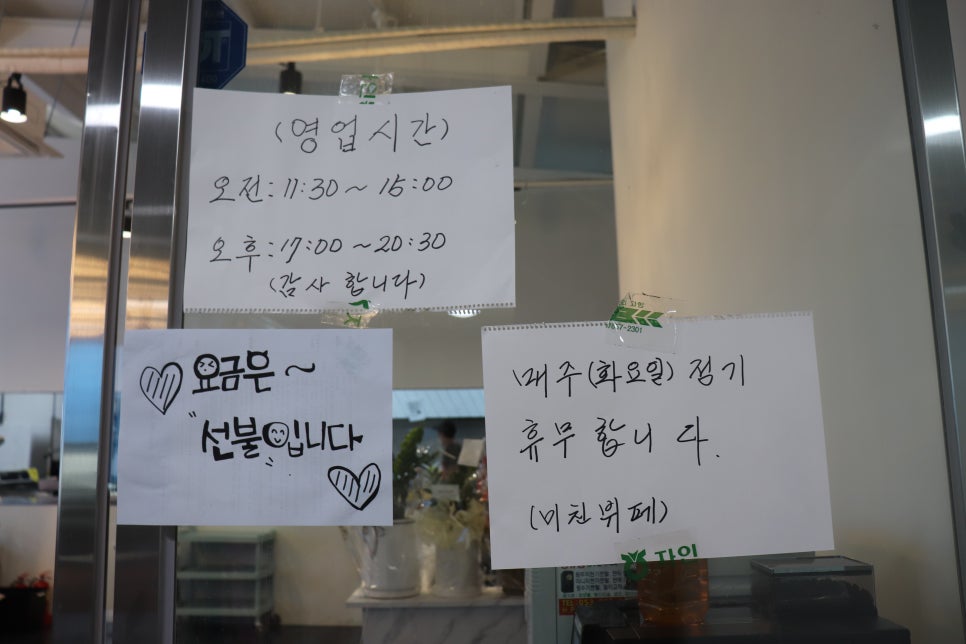 (영업시간)
오전:11:30~15:00
오후:17:00~20:30
(감사합니다)
요금은~
"선불입니다"
매주(화요일)정기
휴무합니다.
(미친뷔페)
자인